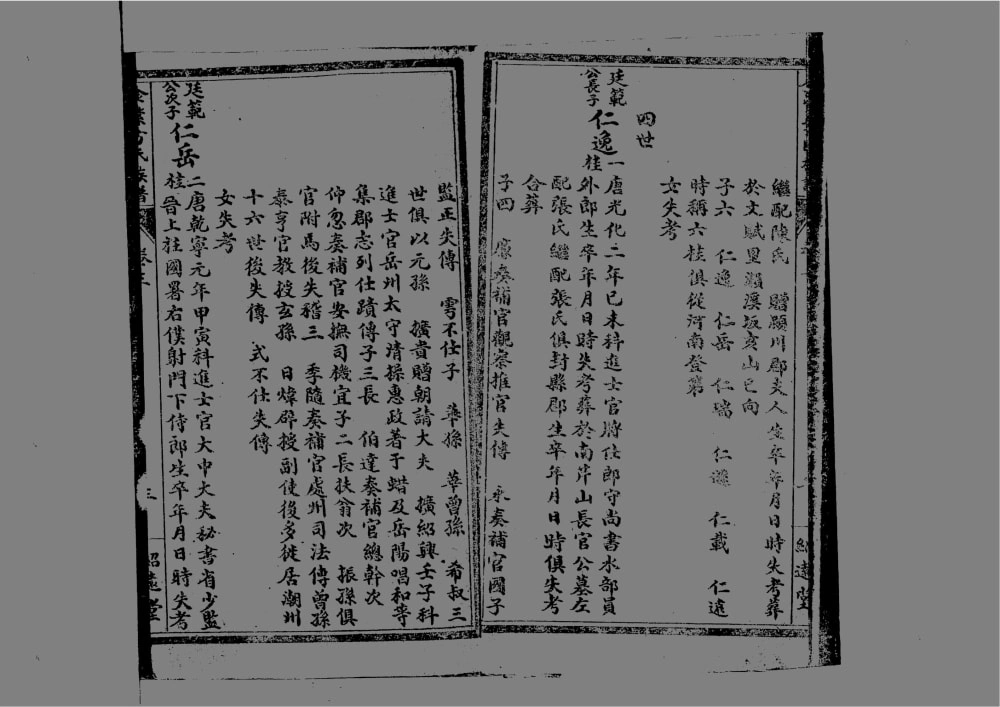 繼配陳氏　贈潁川郡夫人生卒年月日時失考葬
於文賦里瀨溪坂亥山巳向
子六　仁逸　仁岳　仁瑞　仁遜　仁載　仁遠
時稱六桂俱從河南登第
女失考
四世
廷範公長子
仁逸
桂一唐光化二年己未科進士官將仕郎守尚書水部員
外郎生卒年月日時失考葬於南岸山長官公墓左
配張氏繼配張氏俱封縣郡生卒年月日時俱失考
合葬
子四　廩奏補官觀察推官失傳　承奏補官國子
監正失傳　雩不仕子　華孫　華曾孫　希叔三
世俱以元孫　擴貴贈朝請大夫　擴紹興壬子科
進士官岳州太守清操惠政著于蜡及岳陽唱和等
集郡志列仕蹟傳子三長　伯達奏補官總幹次
仰忽奏補官安撫司機宜子二長扶翁次　振孫俱
官附馬後失稽三　季隨奏補官處州司法傳曾孫
泰亨官教授玄孫　日煒辟授副使後多徙居潮州
十六世後失傳　式不仕失傳
女失考
廷範公次子
仁岳
桂二唐乾寧元年甲寅科進士官大中大夫秘書省少監
晉上柱國署右僕射門下侍郎生卒年月日時失考
方氏族譜
卷三
三
紹遠堂